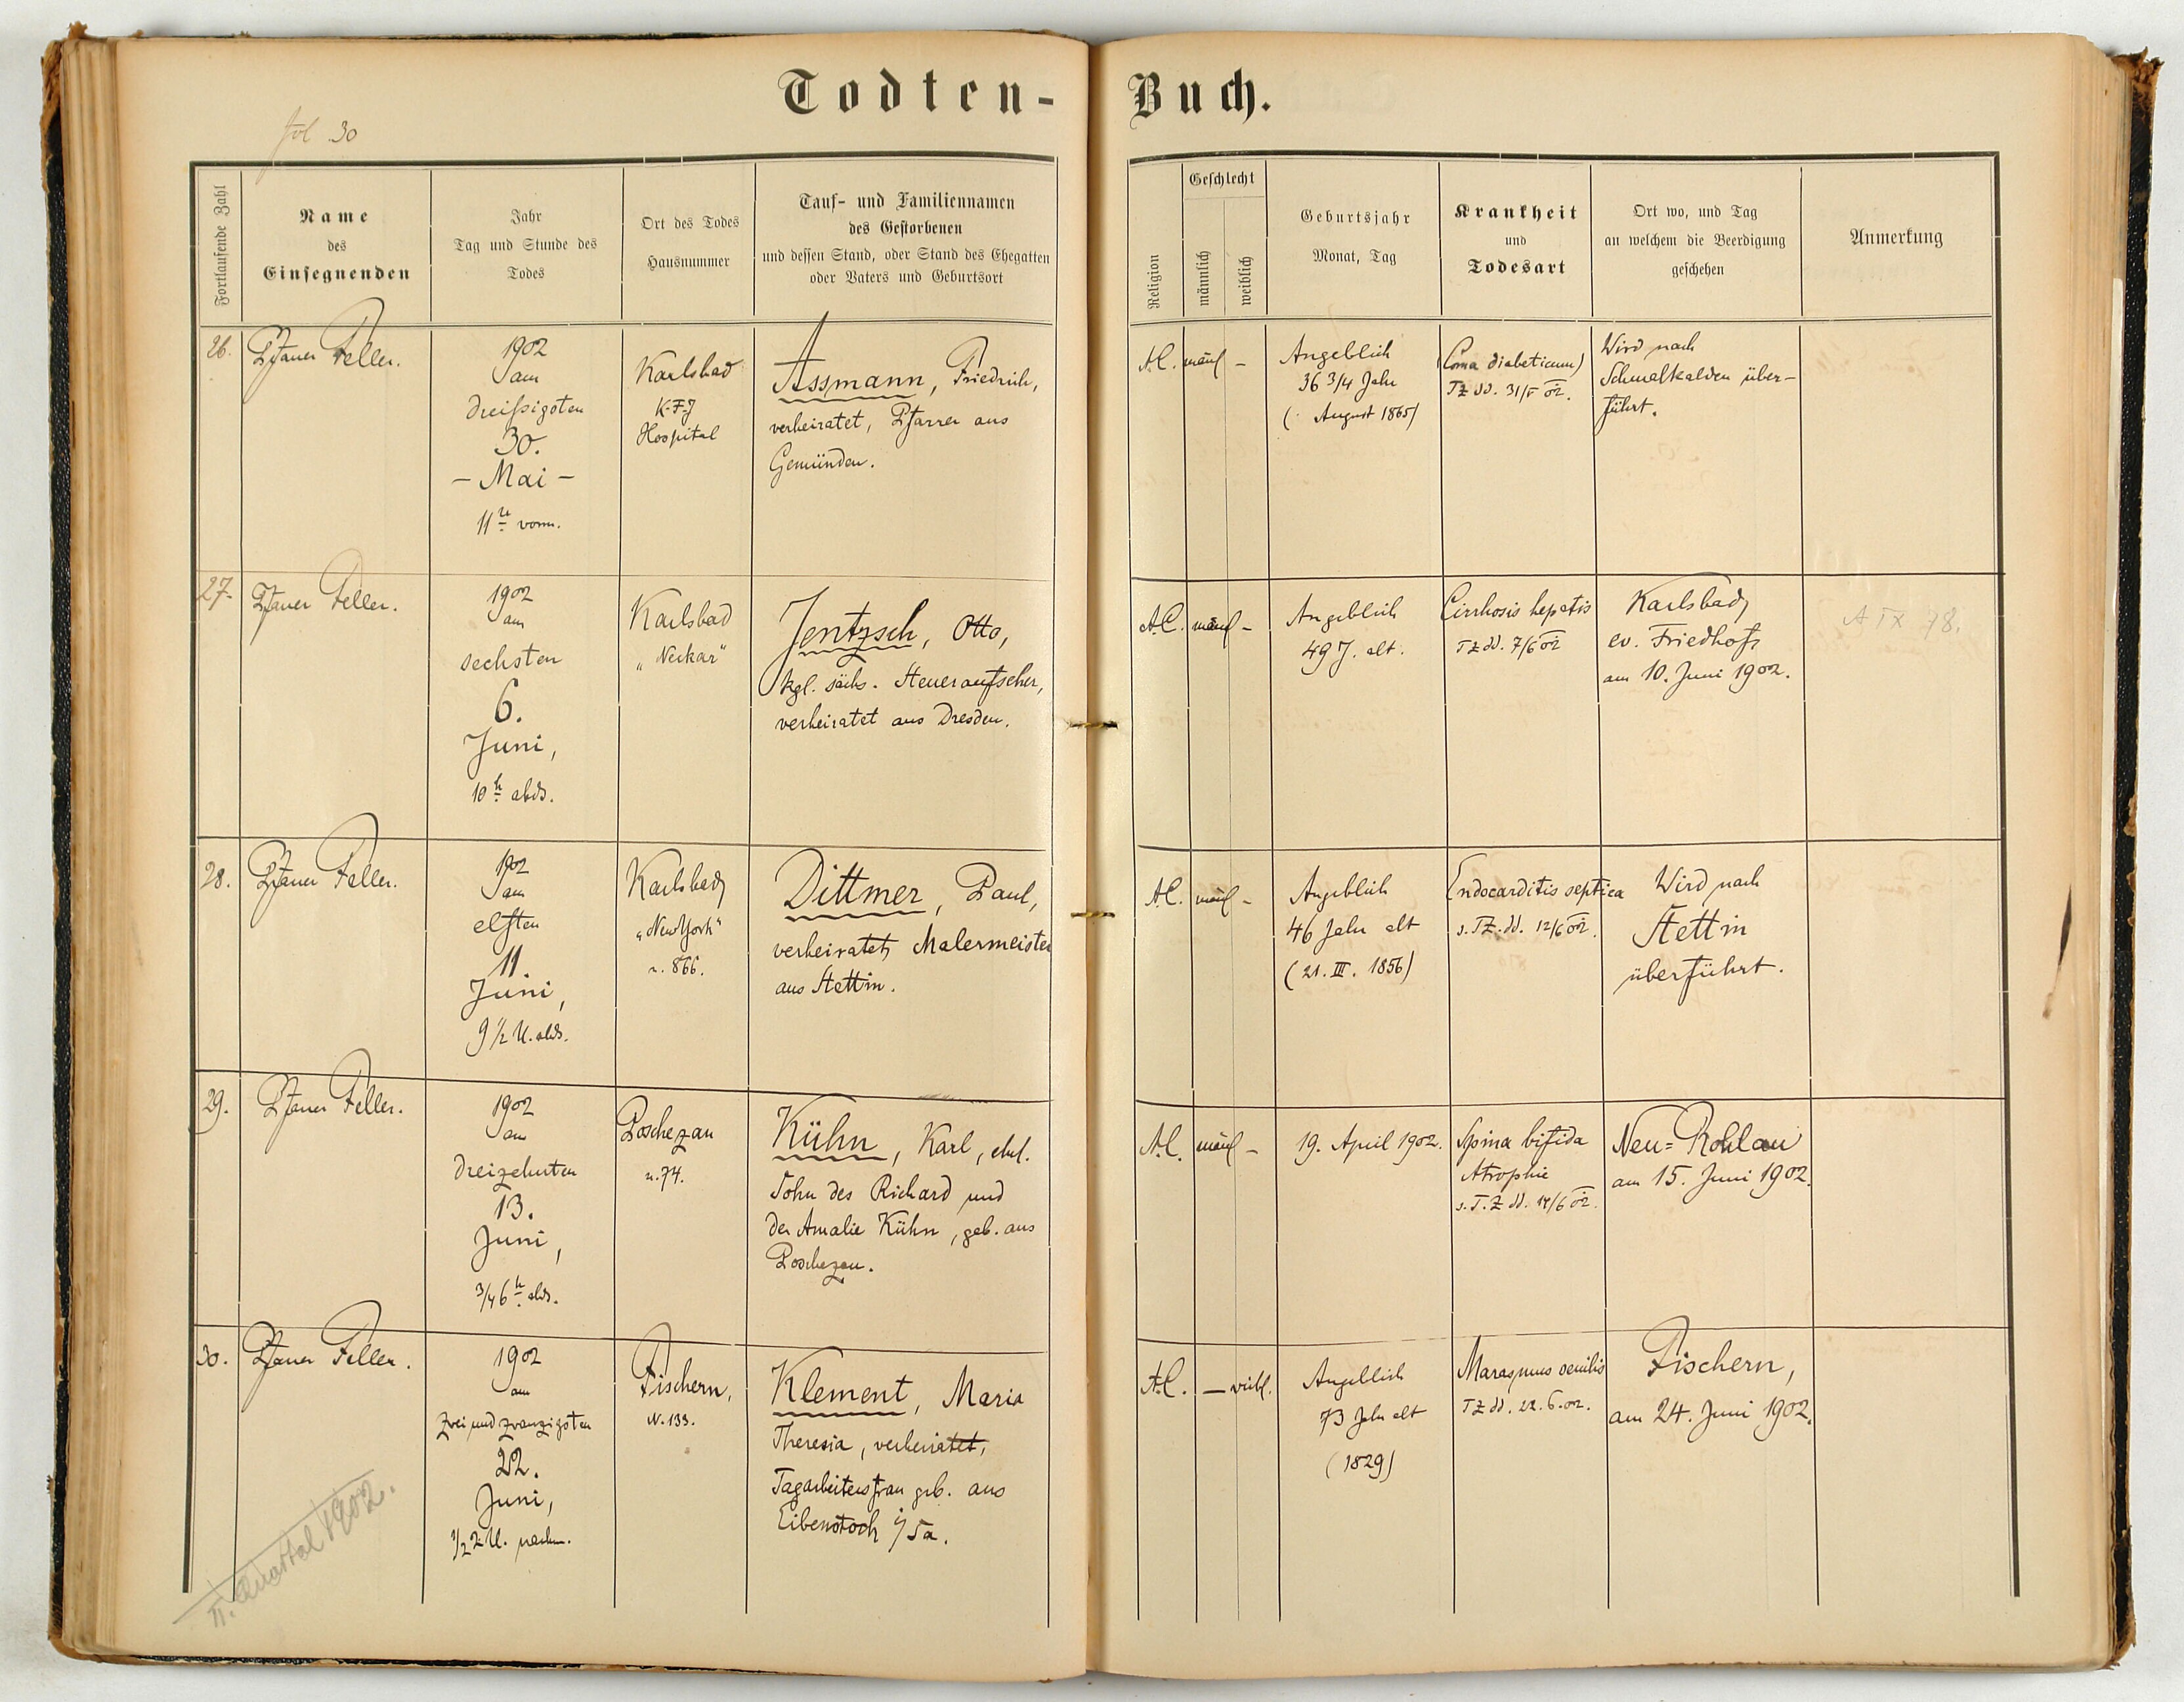 Todten-
Buch.
fol 30
Fortlaufende Zahl
Name
des
Einsegnenden
Jahr
Tag und Stunde des
Todes
Ort des Todes
Hausnummer
Tauf- und Familiennamen
des Gestorbenen
und dessen Stand, oder Stand des Ehegatten
oder Vaters und Geburtsort
Religion
Geschlecht
männlich
weiblich
Geburtsjahr
Monat, Tag
Krankheit
und
Todesart
Ort wo, und Tag
an welchem die Beerdigung
geschehen
Anmerkung
26.
Pfarrer Feller.
1902
am
dreißigsten
30.
- Mai -
11 u vorm.
Karlsbad
K-F-J
Hospital
Assmann, Friedrich,
verheiratet, Pfarrer aus
Gemünden.
A.C.
männl -
Angeblich
36 3/4 Jahr
(August 1865)
(Coma diabeticum)
TZ dd. 31/V 02.
Wird nach
Schmalkalden über-
führt.
27.
Pfarrer Feller.
1902
am
sechsten
6.
Juni,
10 h abds.
Karlsbad
"Neckar"
Jentzsch, Otto,
kgl. sächs. Steueraufseher,
verheiratet aus Dresden.
A.C.
männl -
Angeblich
49 J. alt.
Cirrhosis hepatis
TZ dd. 7/6 02
Karlsbad,
ev. Friedhof,
am 10. Juni 1902.
A IX 78.
28.
Pfarrer Feller.
1902
am
elften
11.
Juni,
9 1/2 U. abds.
Karlsbad,
"New York"
n. 866.
Dittmer, Paul,
verheiratet, Malermeister
aus Stettin.
A.C.
männl -
Angeblich
46 Jahr alt
(21. III. 1856)
Endocarditis septica
s. TZ. dd. 12/6 02.
Wird nach
Stettin
überführt.
29.
Pfarrer Feller.
1902
am
dreizehnten
13.
Juni,
3/4 6 h abds.
Poschezau
n. 74.
Kühn, Karl, ehel.
Sohn des Richard und
der Amalie Kühn, geb. aus
Poschezau.
A.C.
männl -
19. April 1902.
Spina bifida
Atrophie
s. T.Z dd. 14/6 02.
Neu=Rohlau
am 15. Juni 1902.
30.
Pfarrer Feller.
1902
am
zweiundzwanzigsten
22.
Juni,
1/2 2 U. nachm.
Fischern,
N. 133.
Klement, Maria
Theresia, verheiratet,
Tagarbeitersfrau geb. aus
Eibenstock i/Sa.
A.C.
- weibl.
Angeblich
73 Jahr alt
(1829)
Marasmus senilis
TZ dd. 22. 6. 02.
Fischern,
am 24. Juni 1902.
II. Quartal 1902.